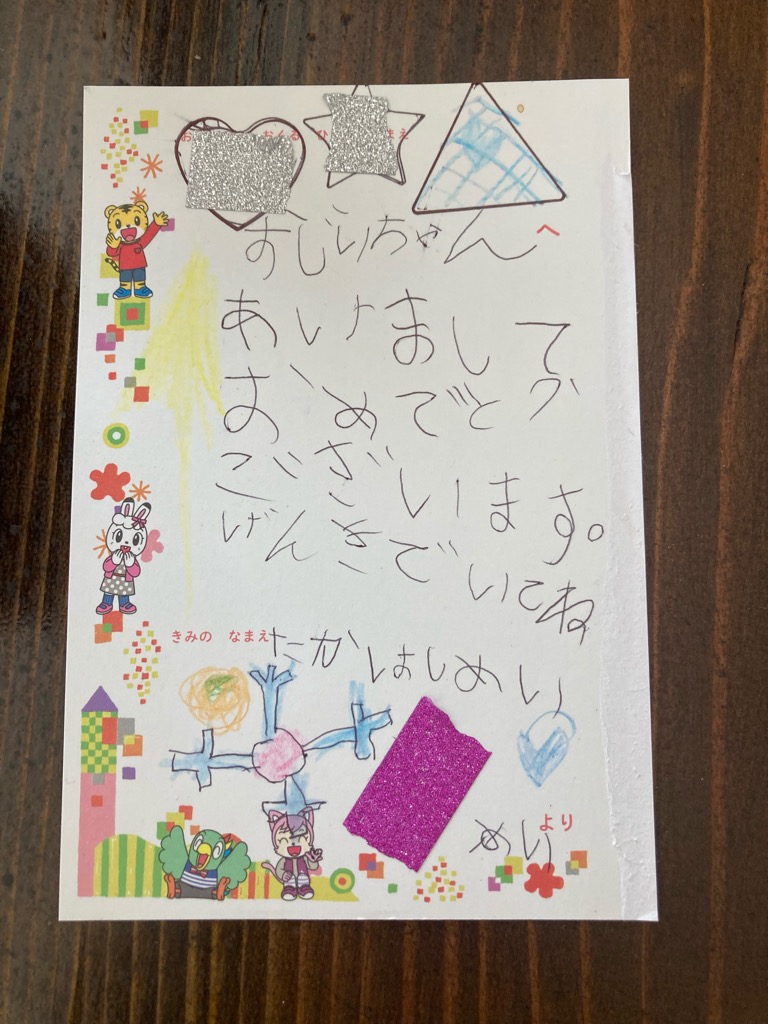 すじりちゃん へ
あけまして
おめでとう
ございます。
げんきでいてね
きみの なまえ たかはしめい
めいより